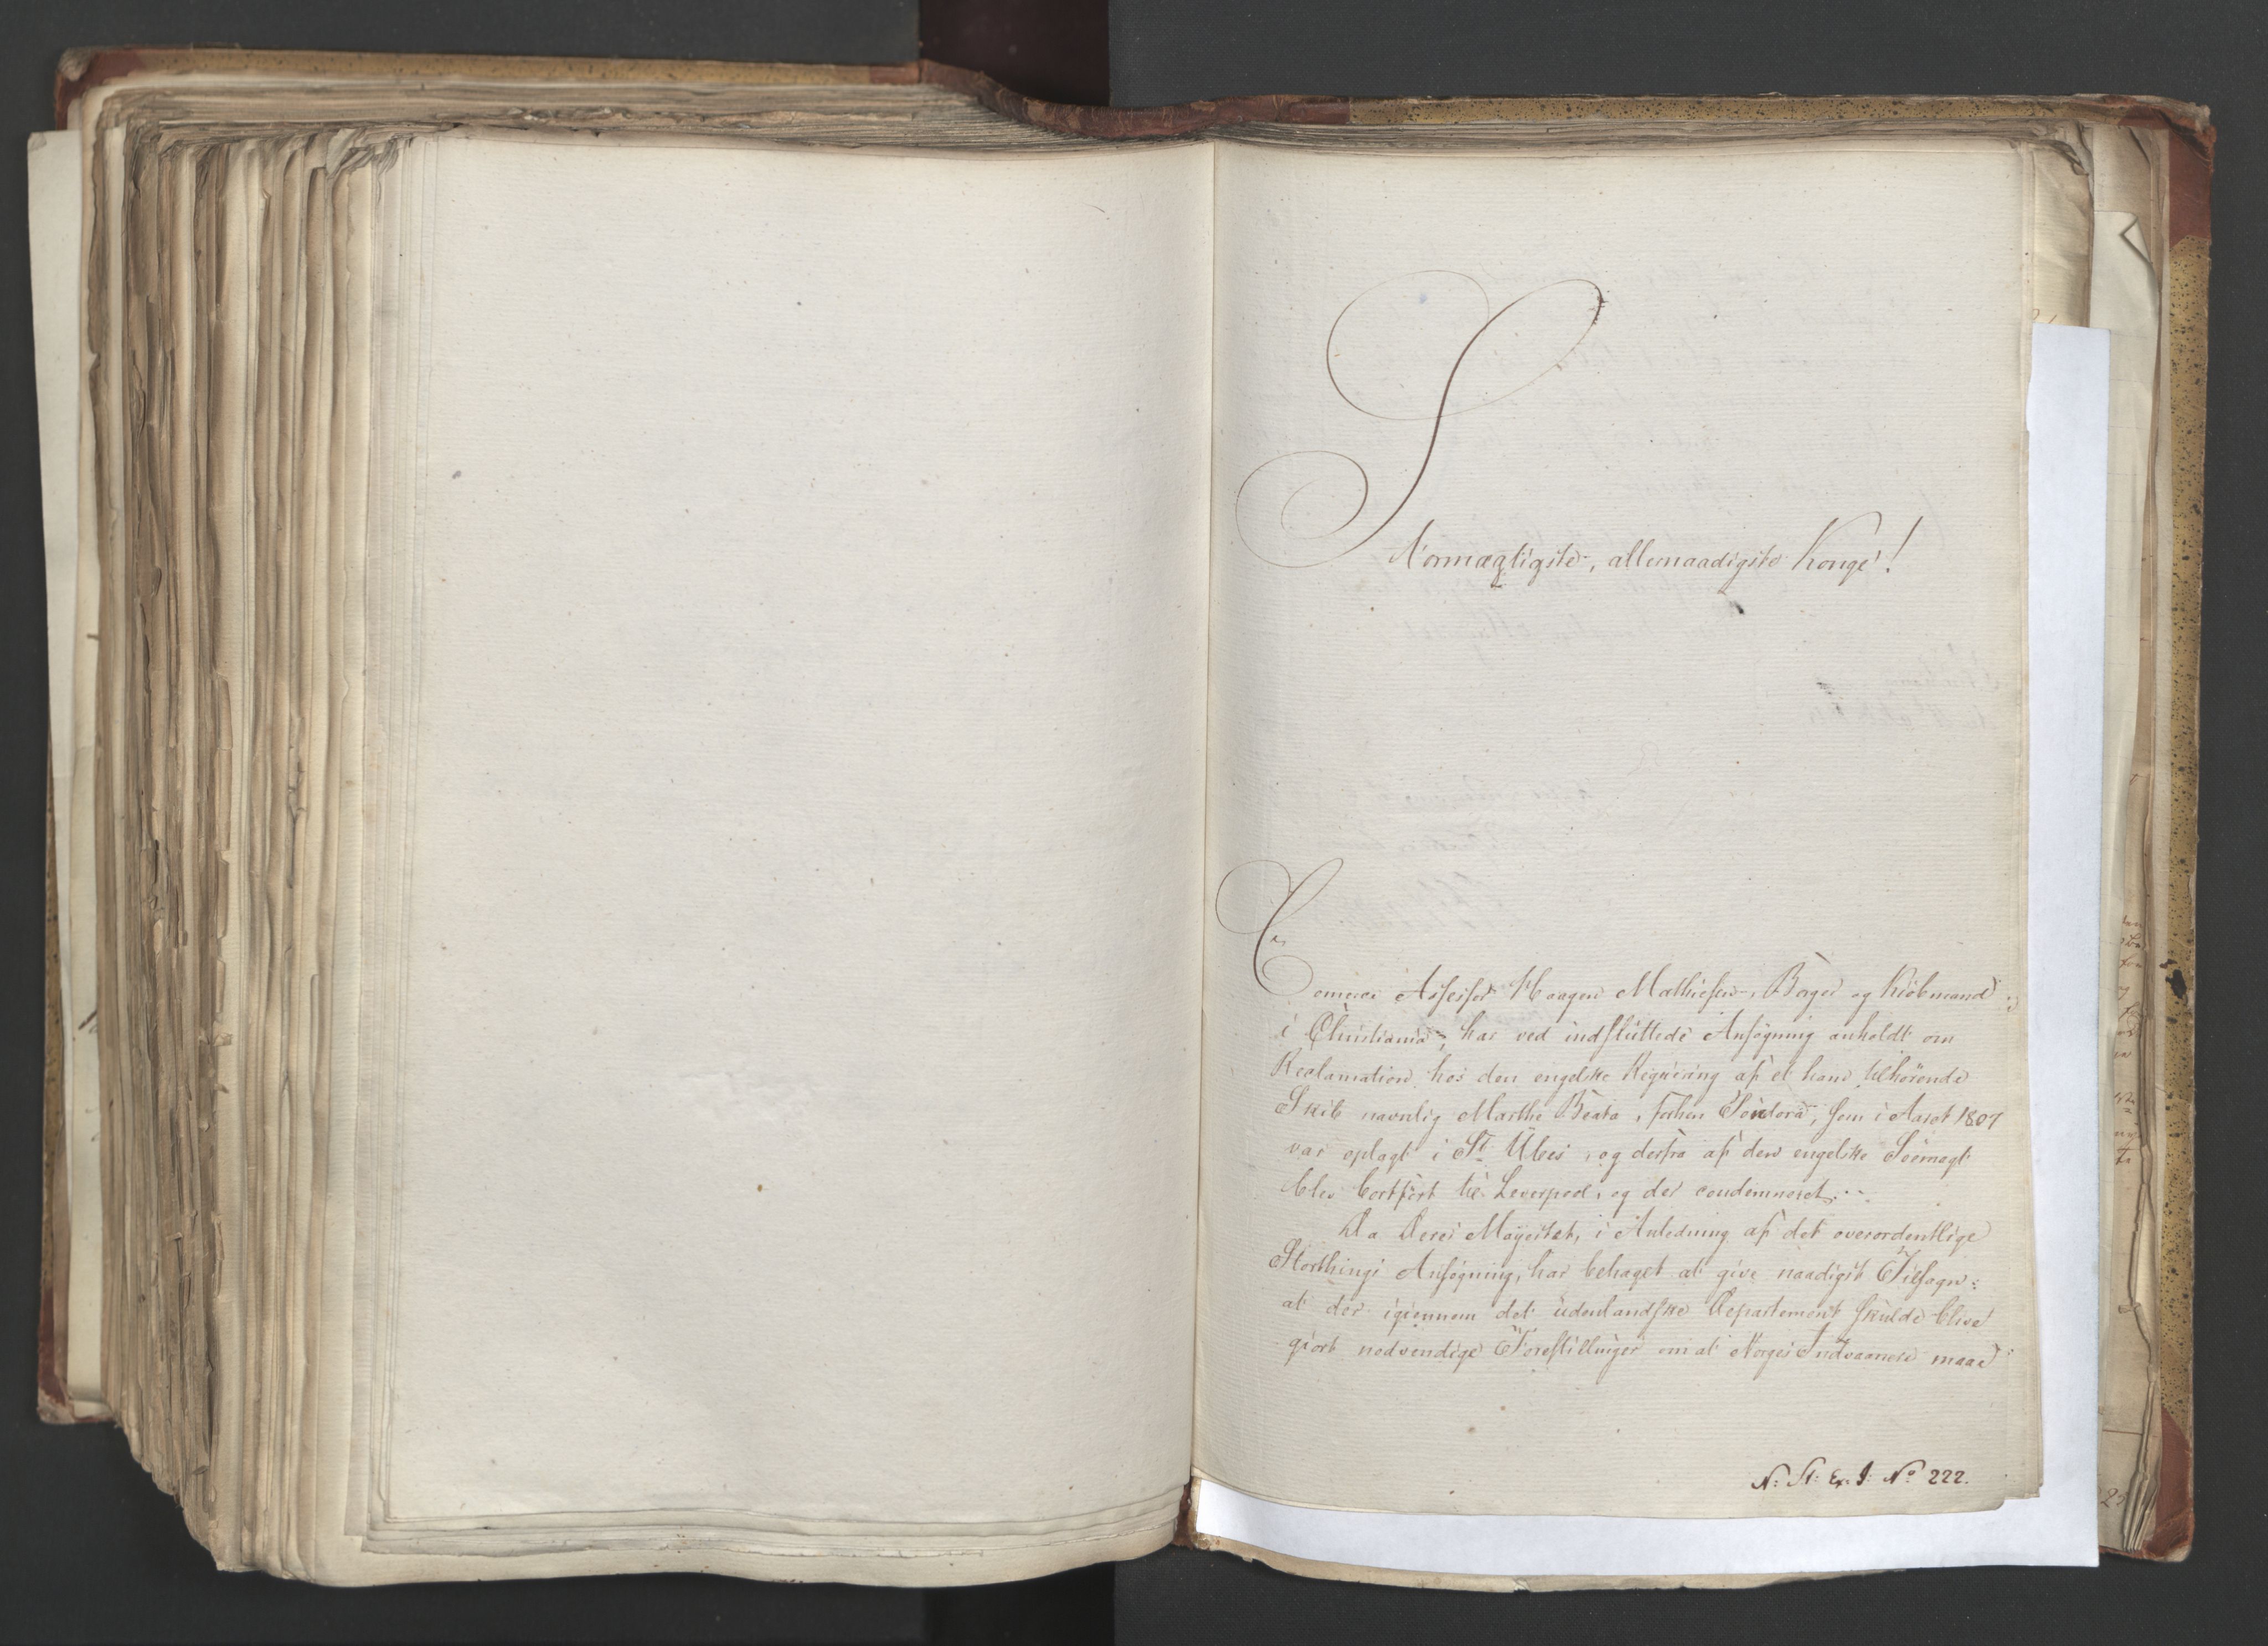 Stormægtigste, allernaadigste Konge!
Comerce Assessor Haagen Mathiesen, Borger og Kiöbmand
i Christiania, har ved indsluttede Ansøgning anholdt om
Reclamation hos den engelske Regiering af et ham tilhörende
Skib navnlig Marthe Beata, forhen Sondora, som i Aaret 1807
var oplagt i St Übes, og derfra af den engelske Söemagt
blev bortfört til Leverpool, og der condemneret.
Da Deres Mayestæt, i Anledning af det overordentlige
Storthings Ansøgning, har behaget at give naadigst Tilsagn:
at der igiennem det udenlandske Departement skulde blive
giort nødvendige Forestillinger om at Norges Indvaanere maae
N: St: Ex. J: No 222.